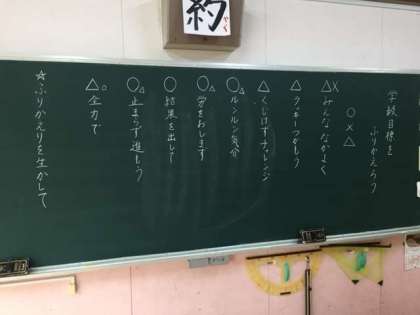 約
やく
学級目標を
ふりかえろう
○×△
△×
みんななかよく
△
ラッキーつかもう
△
くじけずチャレンジ
○△
ルンルン気分
○△
労をおしまず
○
結果を出して
○△
止まらず進もう
△○
全力で
☆ふりかえりを生かして